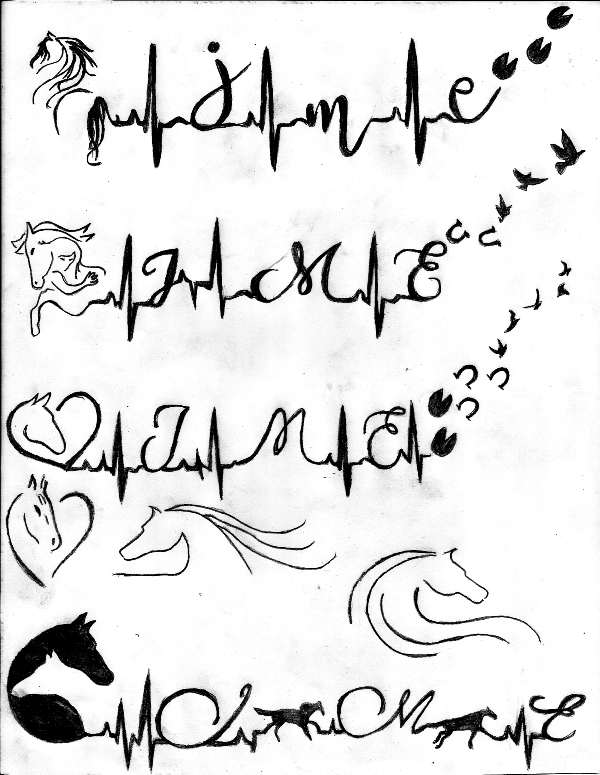 j m e
J M E
J M E
J M E